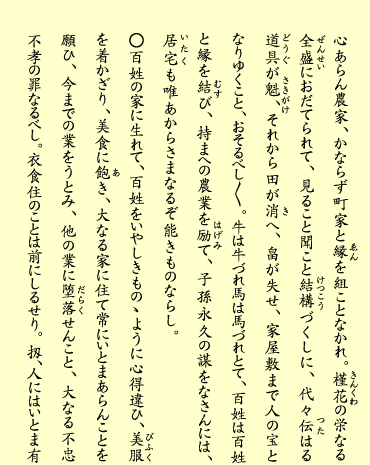 心あらん農家、かならず町家と縁を組ことなかれ。槿花の栄なる
全盛におだてられて、見ること聞こと結構づくしに、代々伝はる
道具が魁、それから田が消へ、畠が失せ、家屋敷まで人の宝と
なりゆくこと、おそるべし〱。牛は牛づれ馬は馬づれとて、百姓は百姓
と縁を結び、持まへの農業を励て、子孫永久の謀をなさんには、
居宅も唯あからさまなるぞ能きものならし。
〇百姓の家に生れて、百姓をいやしきものゝように心得違ひ、美服
を着かざり、美食に飽き、大なる家に住て常にいとまあらんことを
願ひ、今までの業をうとみ、他の業に堕落せんこと、大なる不忠
不孝の罪なるべし。衣食住のことは前にしるせり。扨、人にはいとま有